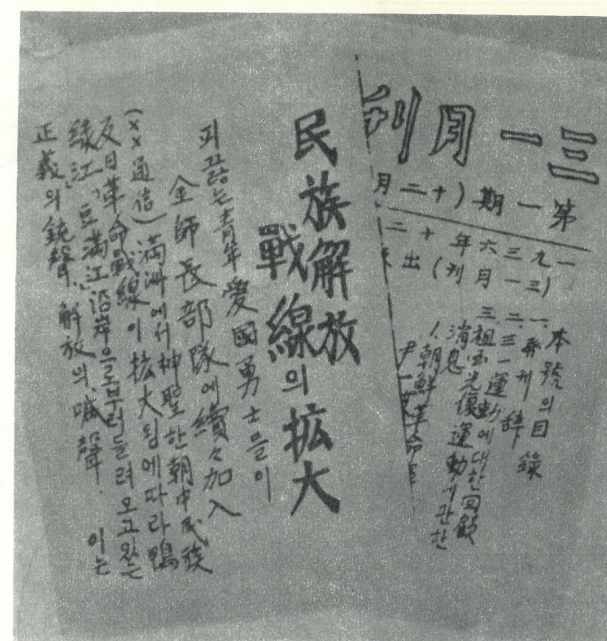 三一月刊
第一期(十二月
一九三六年十二
三一月刊(出
本號의目錄
一、發刊辭
二、三一運動에대한回顧
三、祖國光復運動에관한
消息
1.朝鮮革命
尹一
民族解放
戰線의拡大
피끓는青年愛國勇士들이
金師長部隊에續々加入
(××通信)滿洲에서神聖한朝中民族
反日革命戰線이拡大됨에따라鴨
綠江、豆滿江沿岸으로부터들려오고있는
正義의銃聲、解放의喊聲. 이는